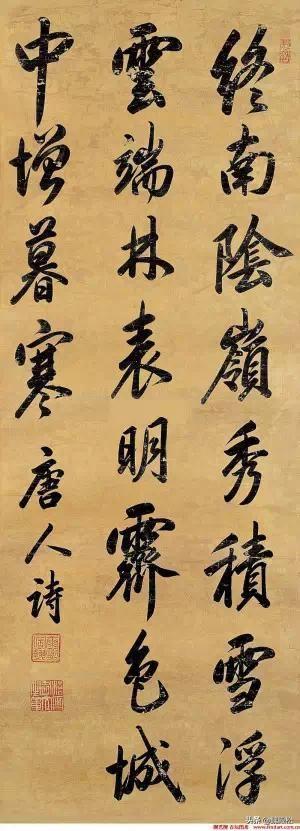 終南陰嶺秀積雪浮
雲端林表明霽色城
中增暮寒唐人詩
头条